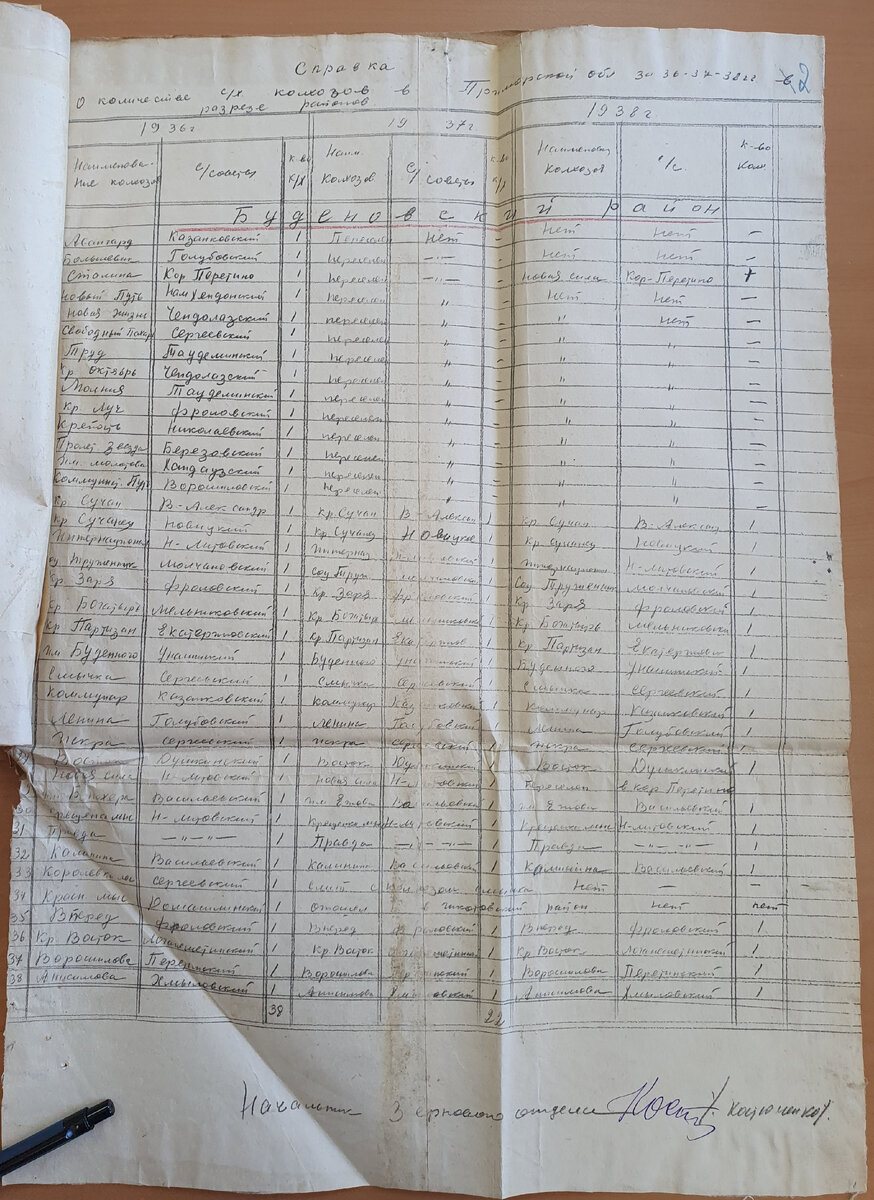 Справка
О количестве с/х колхозов в Приморской обл за 36-37-38 гг в 2
разрезе районов
1936г 1937г 1938г
Наименова- с/советы к-во Наим. с/ советы к-во Наименован с/с. к-во
ние колхозов к/х колхозов к/х колхозов кол
Буденовский район
Авангард Казанковский 1 Пересел нет - Нет Нет -
Большевик Голубовский 1 пересел -"- - нет нет -
Сталина Кор Перетино 1 пересел -"- - новая сила Кор-Перетино +
Новый Путь 1 пересел " - Нет Нет -
Новая жизнь Чендолазский 1 пересел " - " нет -
Свободный Пахарь Сергеевский 1 пересел " - " " -
Труд Таудеминский 1 пересел " - " " -
Кр. Октябрь Чендолазский 1 пересел " - " " -
Молния Таудеминский 1 пересел " - " " -
Кр. Луч Фроловский 1 пересел " - " " -
Крепость Николаевский 1 пересел " - " " -
Пролет Звезда Березовский 1 пересел " - " " -
им. Молотова Хандаузский 1 пересел " - " " -
Коммунист. Путь Ворошиловский 1 пересел " - " " -
Кр. Сучан В-Александр 1 кр. Сучан В-Алексан 1 кр. Сучан В-Алексан 1
кр. Сучанец Новицкий 1 кр. Сучанец Новицкое 1 кр. сучанец Новицкий 1
Интернационал Н-Литовский 1 Интернац 1 Интернационал Н-Литовский 1
Соц Труженник Молчановский 1 Соц Труж Молчановский 1 Соц Труженник Молчановский 1
Кр. Заря Фроловский 1 Кр. Заря Фроловский 1 Кр. Заря Фроловский 1
Кр Богатырь Мельниковский 1 Кр. Богатыр Мельниковск 1 Кр. Богатырь Мельниковски 1
Кр. Партизан Екатериновский 1 Кр. Партизан Екатеринов 1 Кр. Партизан Екатеринов 1
им Буденного Унашинский 1 Буденного Унашинский 1 Буденного Унашинский 1
Смычка Сергеевский 1 Смычка Сергеевский 1 Смычка Сергеевский 1
Коммунар Казанковский 1 Коммунар Казанковский 1 Коммунар Казанковский 1
Ленина Голубовский 1 Ленина Голубовский 1 Ленина Голубовский 1
Искра Сергеевский 1 Искра Сергеевский 1 Искра Сергеевский 1
Восток Душкинский 1 Восток Душкинский 1 Восток Душкинский 1
Новая сила Н-Литовский 1 Новая сила Н-Литовский 1 Переселен в кор Перетино
Васильевский 1 им Ежова Васильевски 1 им Ежова Васильевский 1
Н-литовский 1 Н-литовский 1 Н-литовский 1
31 Правда -"-"- 1 Правда -"-"- 1 Правда -"-"- 1
32 Калинина Васильевский 1 Калинин Васильевский 1 Калинина Васильевский 1
33 Королевка Сергеевский 1 слит с колхозом смычка нет - -
34 Красн мыс Домашлинский 1 отошел в шкотовский район нет нет
35 Вперед Фроловский 1 Вперёд Фроловский 1 Вперед Фроловский 1
36 Кр. Восток Логанешинский 1 Кр. Восток Логанешинский 1 Кр. Восток Логанешинский 1
37 Ворошилова Перетинский 1 Ворошилова Перетинский 1 Ворошилова Перетинский 1
38 Анисимова Хмыловский 1 Анисимова Хмыловский 1 Анисимова Хмыловский 1
38 22
Начальник Зернового отдела Кост /Костюченко/